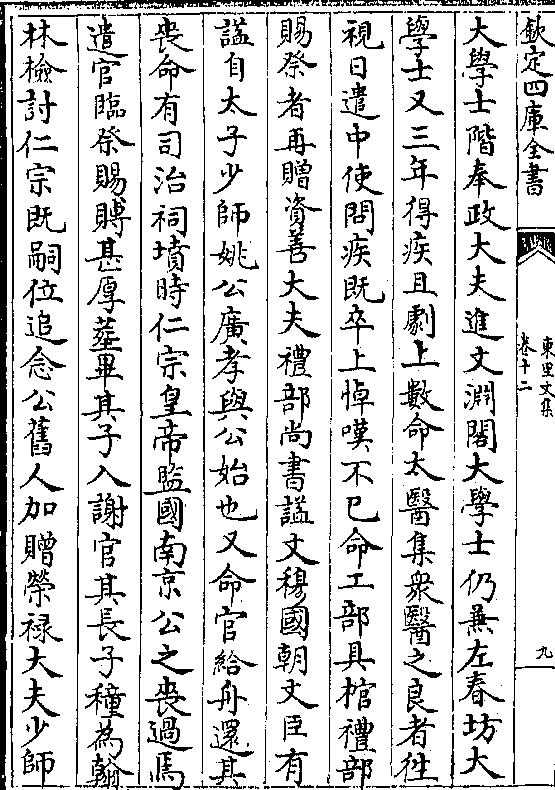 欽定四庫全書
東里文集
卷十二
九
大學士階奉政大夫進文淵閣大學士仍兼左春坊大
學士又三年得疾且劇上數命太醫集衆醫之良者徃
視日遣中使問疾既卒上悼嘆不已命工部具棺禮部
賜祭者再贈資善大夫禮部尚書諡文穆國朝文臣有
諡自太子少師姚公廣孝與公始也又命官給舟還其
喪命有司治祠墳時仁宗皇帝監國南京公之喪過焉
遣官臨祭賜賻甚厚塟畢其子入謝官其長子穜為翰
林檢討仁宗既嗣位追念公舊人加贈榮禄大夫少師